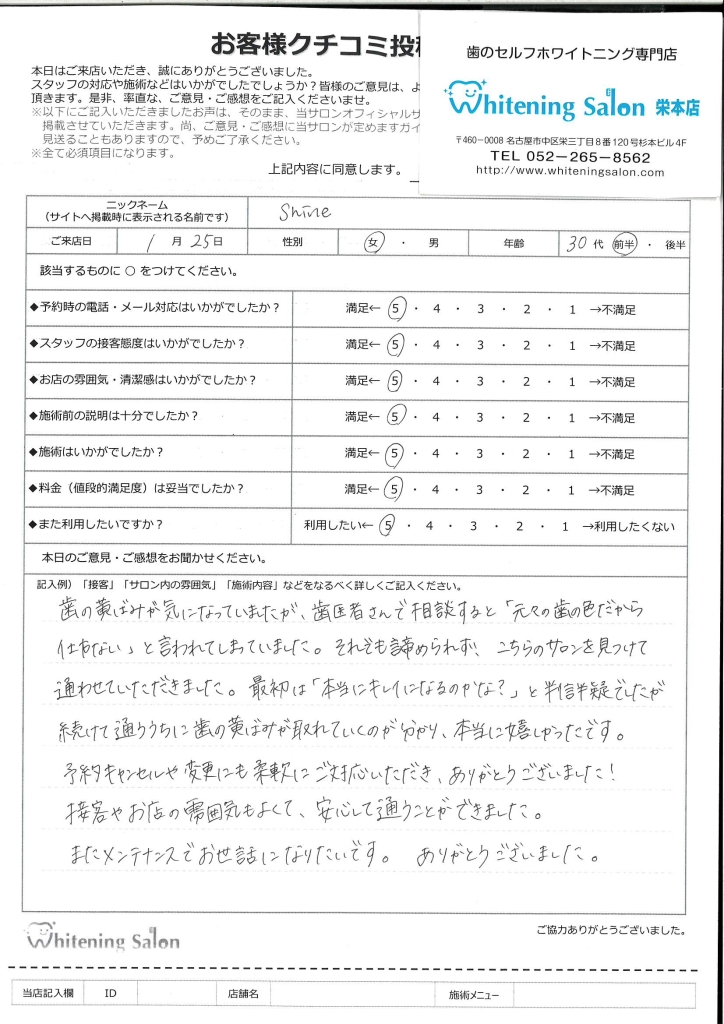 お客様クチコミ投稿
歯のセルフホワイトニング専門店
Whitening Salon 栄本店
〒460-0008 名古屋市中区栄三丁目8番120号杉本ビル4F
TEL 052-265-8562
http://www.whiteningsalon.com
本日はご来店いただき、誠にありがとうございました。
スタッフの対応や施術などはいかがでしたでしょうか?皆様のご意見は、よ
頂きます。是非、率直な、ご意見・ご感想をご記入くださいませ。
※以下にご記入いただきましたお声は、そのまま、当サロンオフィシャルサ
掲載させていただきます。尚、ご意見・ご感想に当サロンが定めますガイ
見送ることもありますので、予めご了承ください。
※全て必須項目になります。
上記内容に同意します。
ニックネーム
(サイトへ掲載時に表示される名前です)
Shine
ご来店日 1月25日 性別 女・男 年齢 30代 前半・後半
該当するものに○をつけてください。
◆予約時の電話・メール対応はいかがでしたか? 満足← 5・4・3・2・1 →不満足
◆スタッフの接客態度はいかがでしたか? 満足← 5・4・3・2・1 →不満足
◆お店の雰囲気・清潔感はいかがでしたか? 満足← 5・4・3・2・1 →不満足
◆施術前の説明は十分でしたか? 満足← 5・4・3・2・1 →不満足
◆施術はいかがでしたか? 満足← 5・4・3・2・1 →不満足
◆料金(値段的満足度)は妥当でしたか? 満足← 5・4・3・2・1 →不満足
◆また利用したいですか? 利用したい← 5・4・3・2・1 →利用したくない
本日のご意見・ご感想をお聞かせください。
記入例)「接客」「サロン内の雰囲気」「施術内容」などをなるべく詳しくご記入ください。
歯の黄ばみが気になっていましたが、歯医者さんで相談すると「元々の歯の色だから
仕方ない」と言われてしまっていました。それでも諦められず、こちらのサロンを見つけて
通わせていただきました。最初は「本当にキレイになるのかな?」と半信半疑でしたが
続けて通ううちに歯の黄ばみが取れていくのが分かり、本当に嬉しかったです。
予約キャンセルや変更にも柔軟にご対応いただき、ありがとうございました!
接客やお店の雰囲気もよくて、安心して通うことができました。
またメンテナンスでお世話になりたいです。 ありがとうございました。
Whitening Salon
ご協力ありがとうございました。
当店記入欄 ID 店舗名 施術メニュー